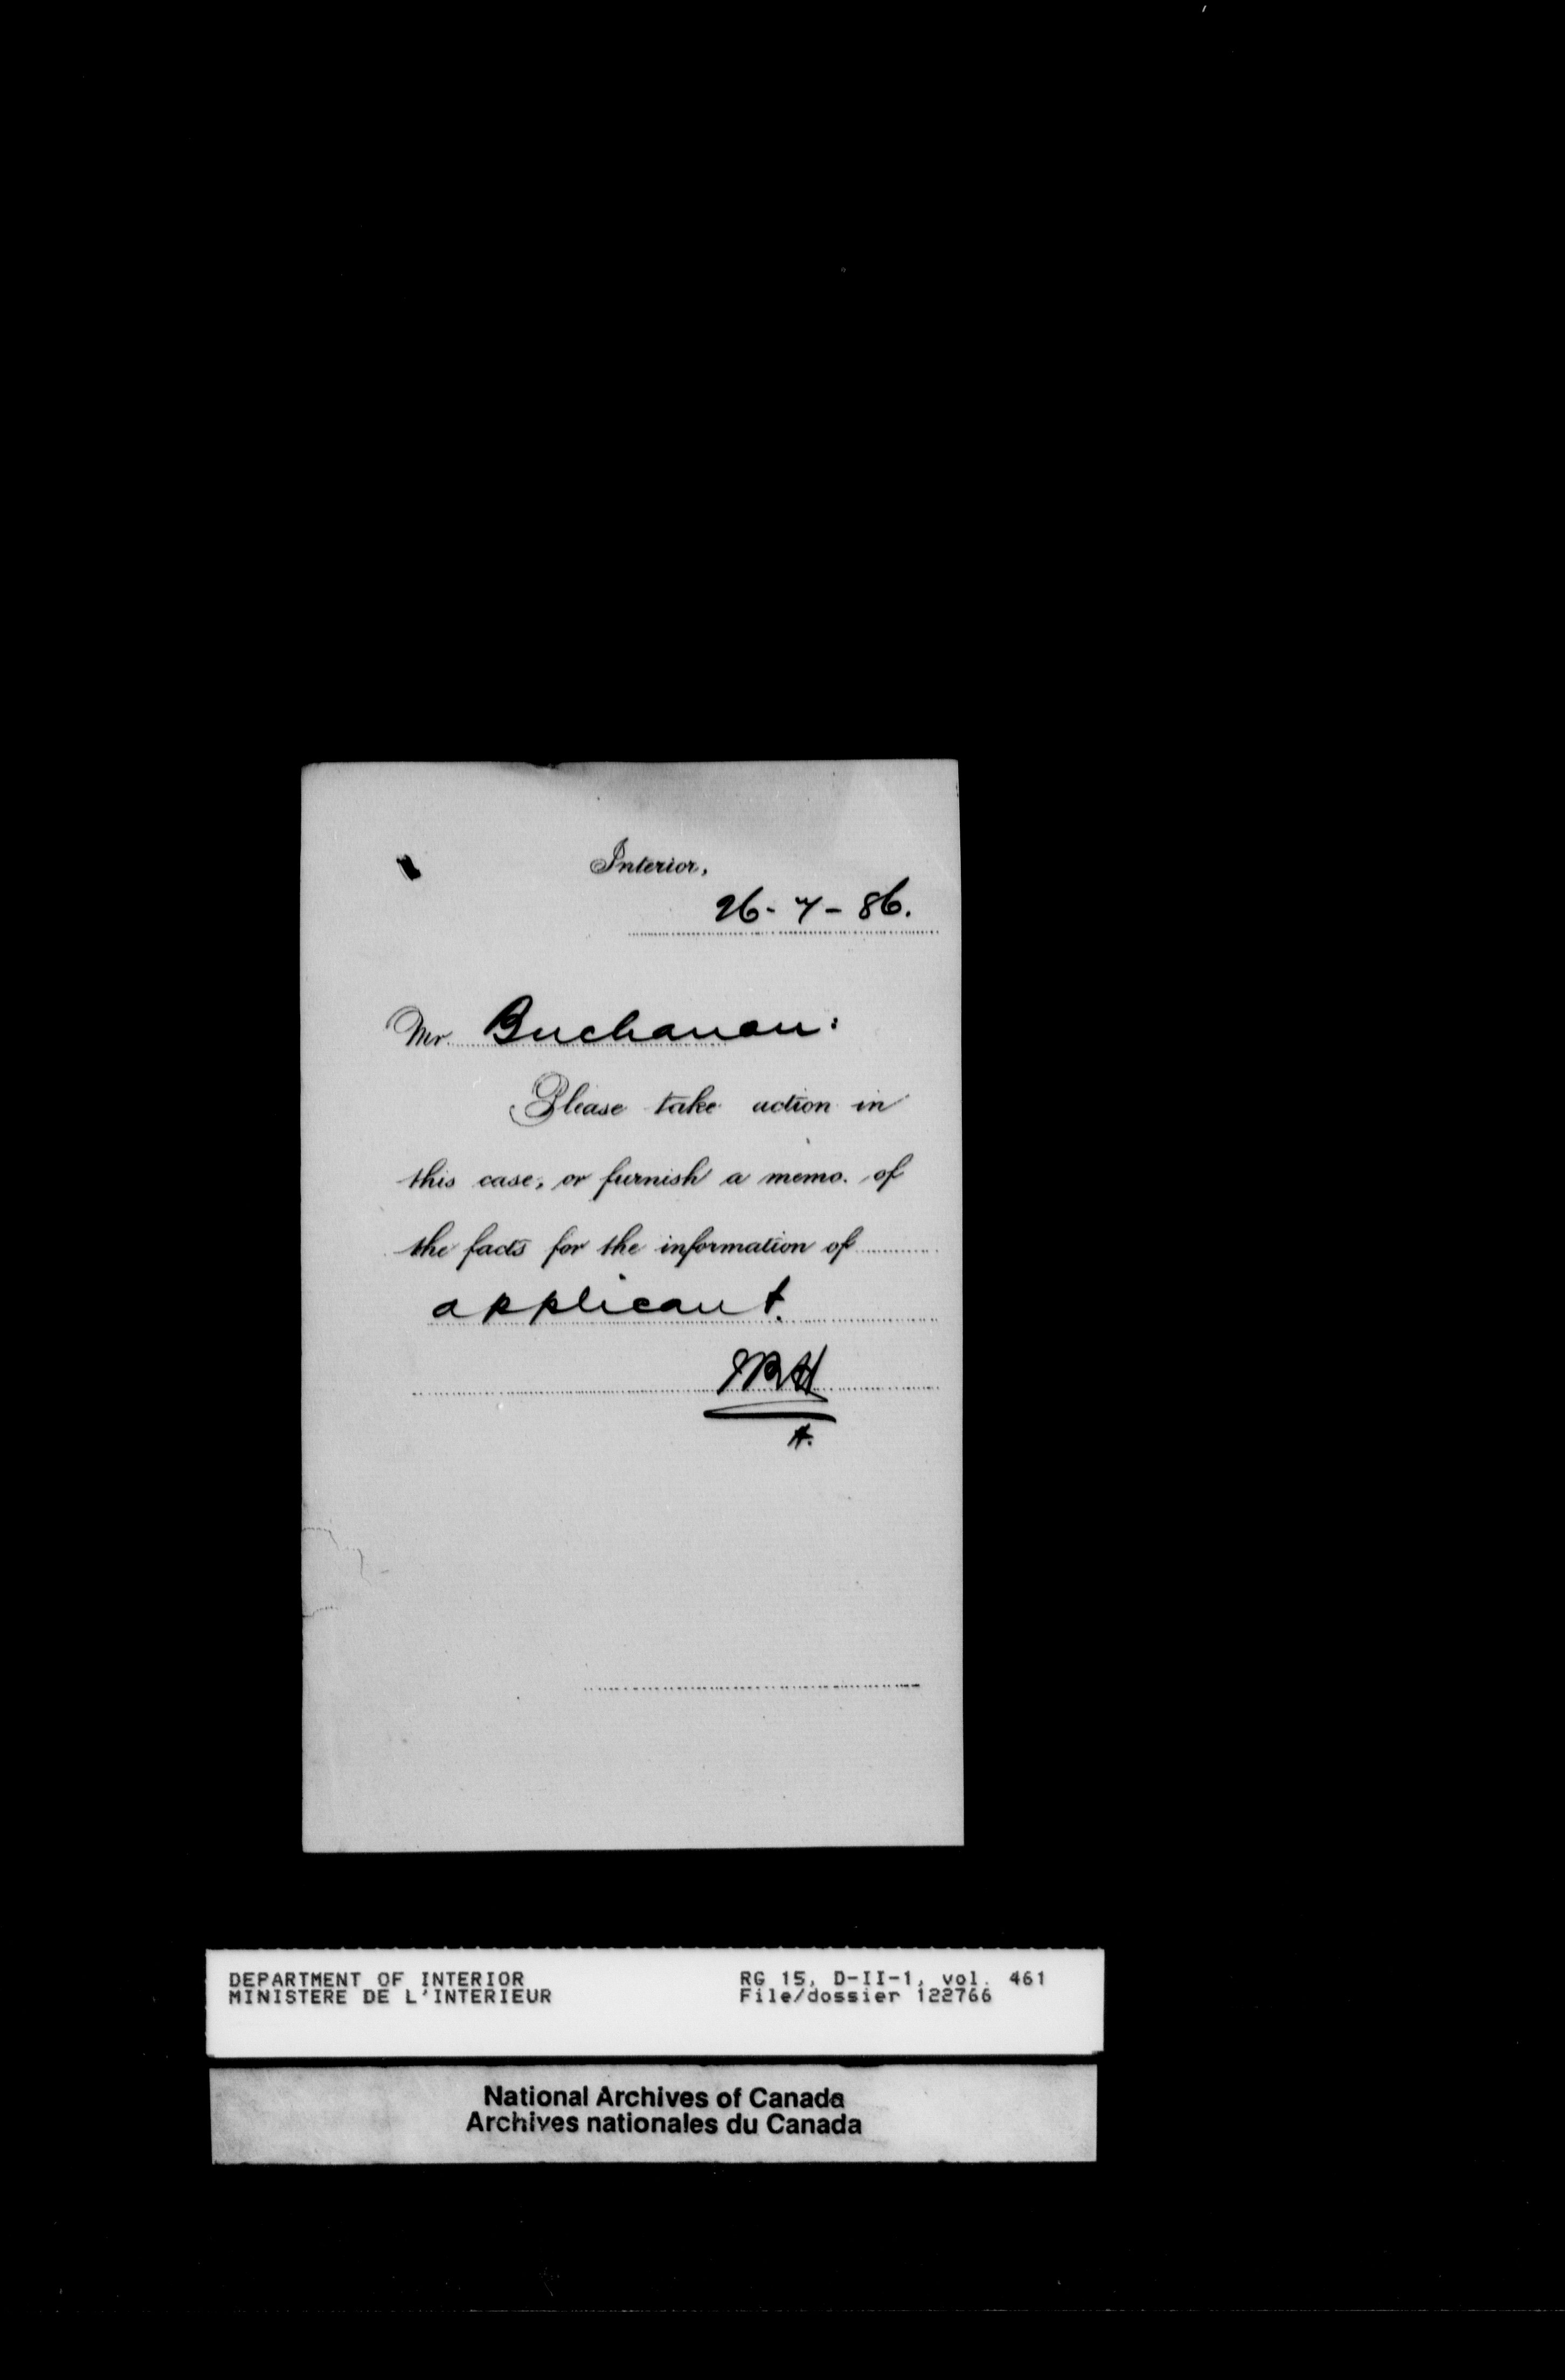 Interior,
26-7-86.
Mr. Buchanan:
Please take action in
this case, or furnish a memo. of
the facts for the information of
applicant.
H.
DEPARTMENT OF INTERIOR
MINISTERE DE L'INTERIEUR
RG 15, D-II-1, vol. 461
File/dossier 122766
National Archives of Canada
Archives nationales du Canada